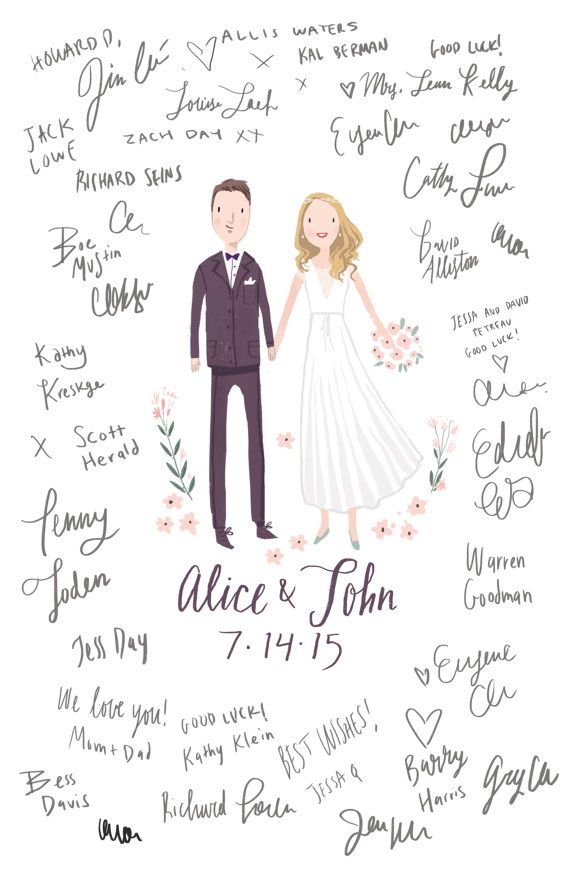 HOWARD D,
ALLIS WATERS
KAL BERMAN
GOOD LUCK!
Jin
X
X
Mrs. Leun Kelly
Louise
JACK
LOWE
ZACH DAY XX
Eugen
Cathy
RICHARD SEINS
Boe
Mustin
David
Alliston
JESSA AND DAVID
PETREAU
GOOD LUCK!
Kathy
Kreskge
X
Scott
Herald
Penny
Loden
Warren
Goodman
Alice & John
7·14·15
Jess Day
Eugene
We love you!
Mom + Dad
GOOD LUCK!
Kathy Klein
BEST WISHES!
JESSA Q
Barry
Harris
Bess
Davis
Richard